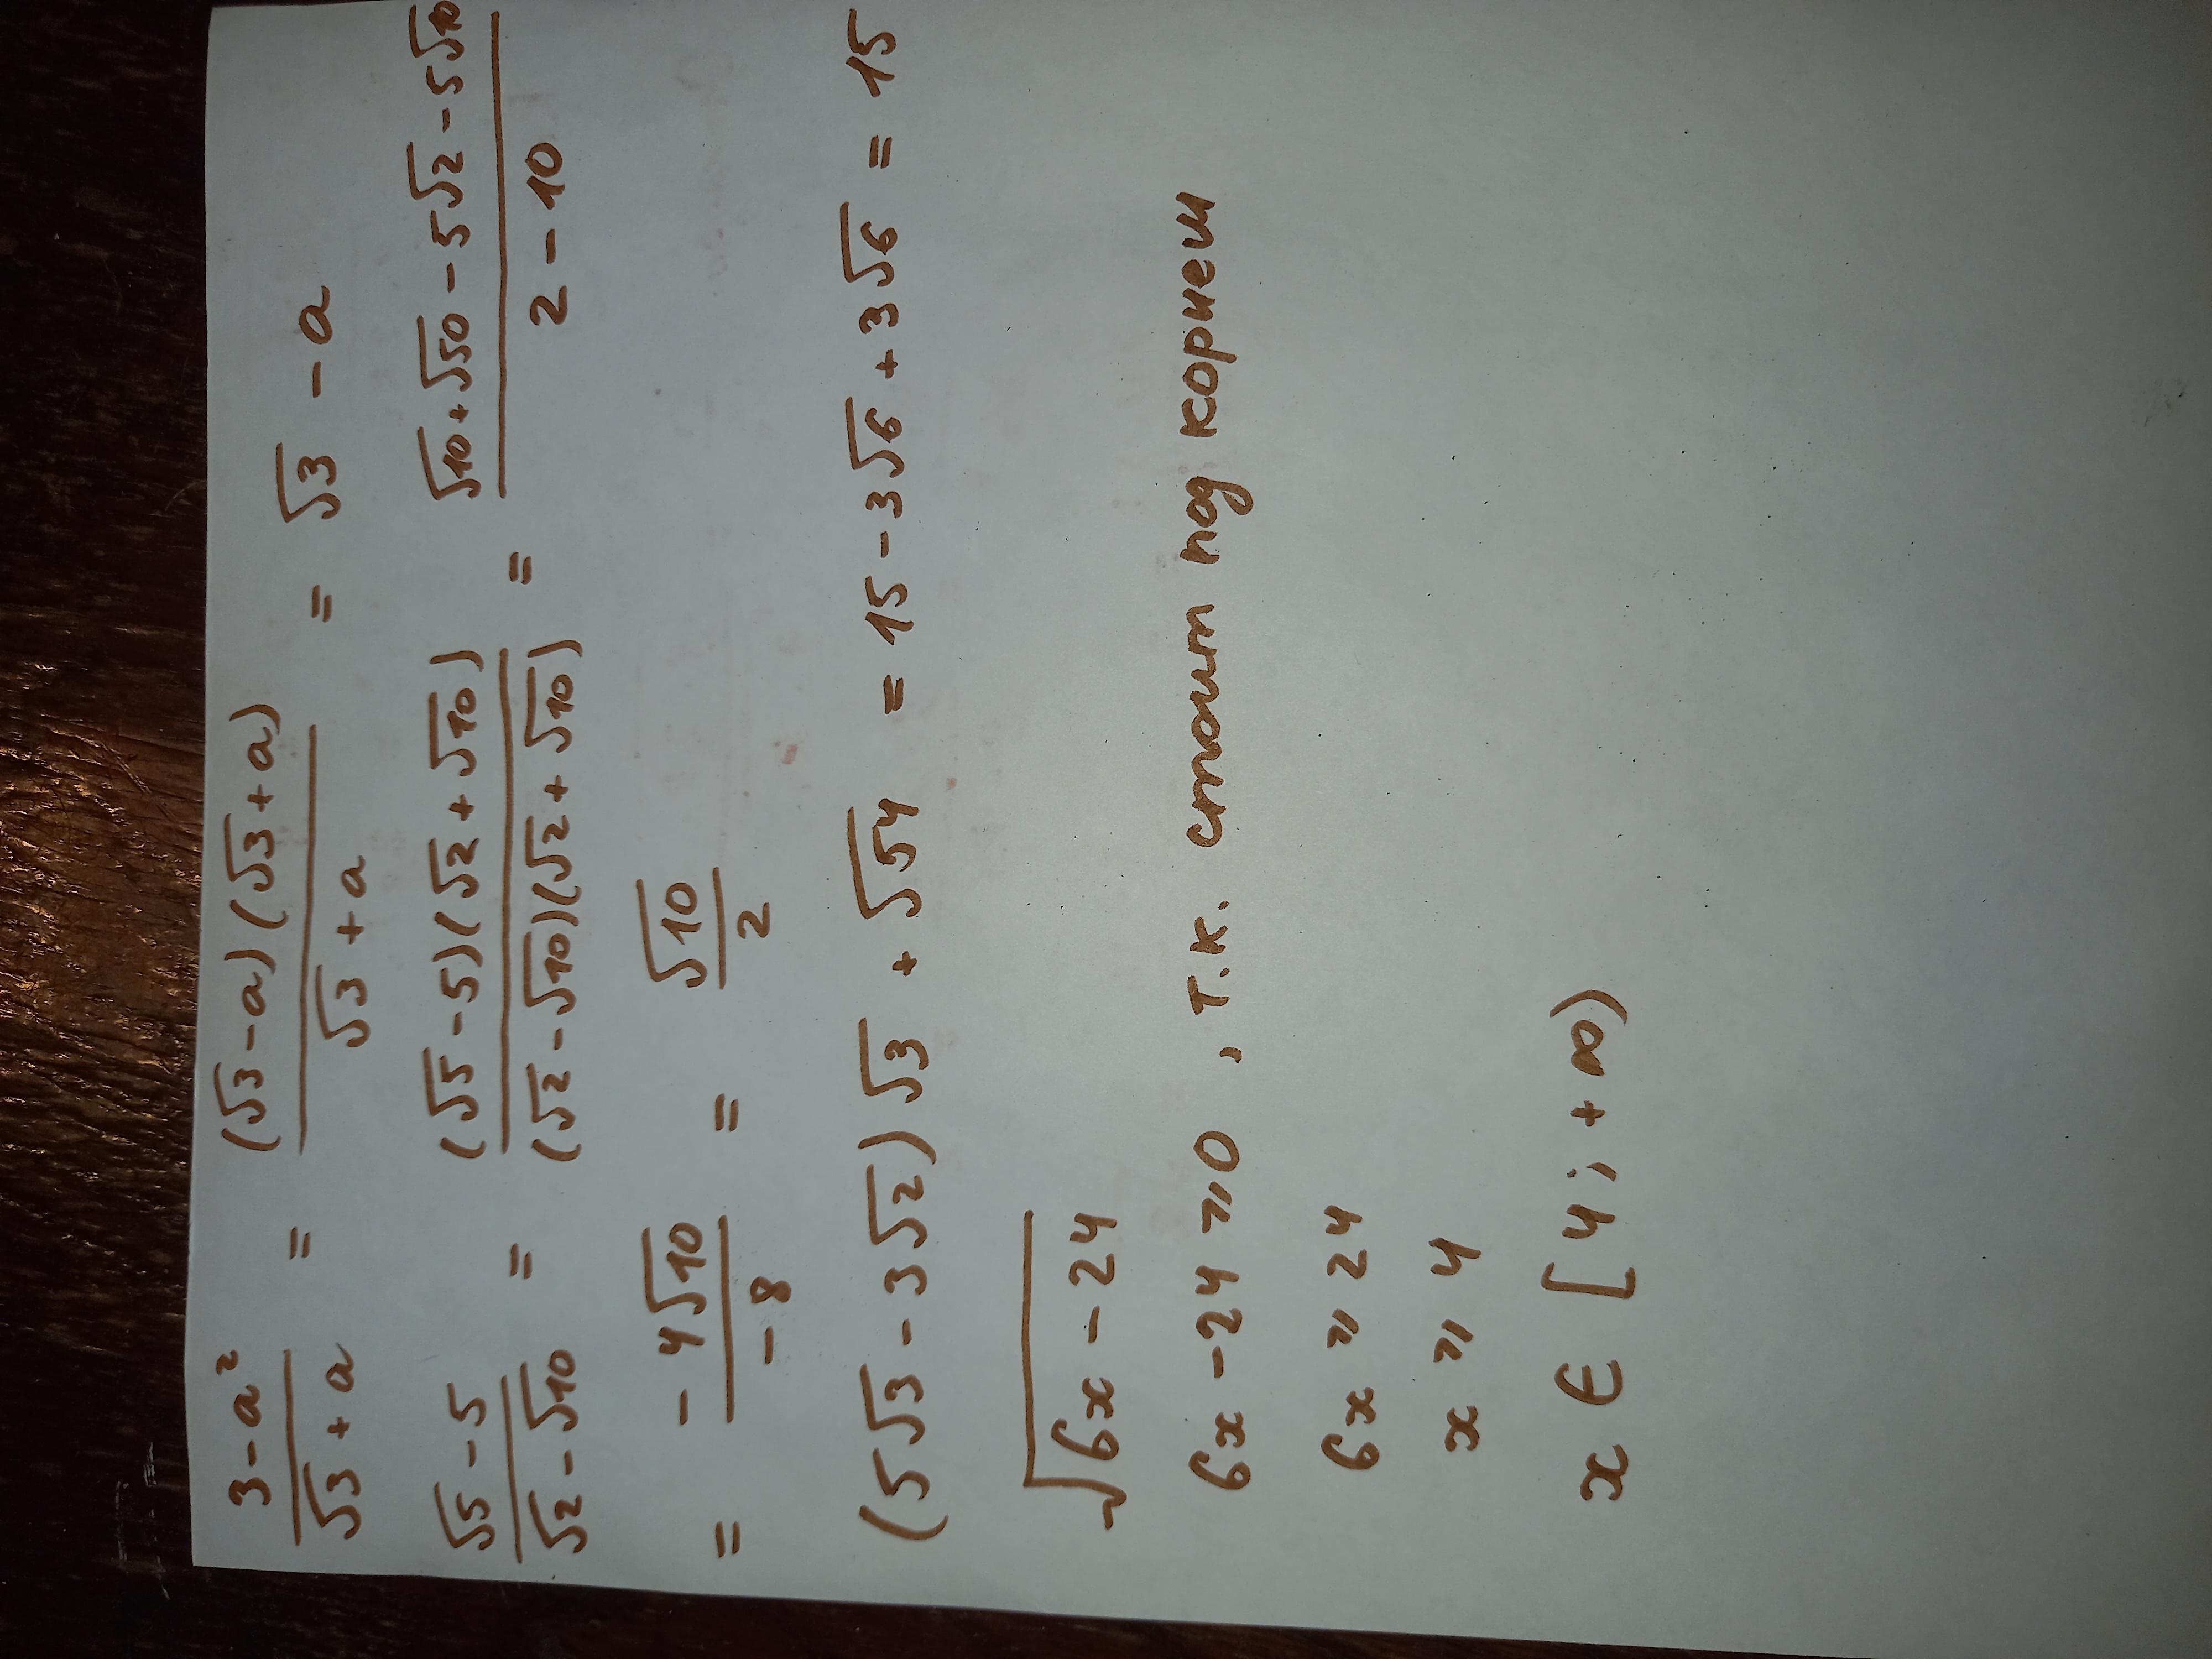 (3-a²)/(√3+a) = ((√3-a)(√3+a))/(√3+a) = √3 - a
(√5-5)/(√2-√10) = ((√5-5)(√2+√10))/((√2-√10)(√2+√10)) = (√10+√50-5√2-5√10)/(2-10)
= (-4√10)/(-8) = √10/2
(5√3-3√2)√3 + √54 = 15-3√6+3√6 = 15
√(6x-24)
6x-24⩾0, т.к. стоит под корнем
6x ⩾ 24
x ⩾ 4
x ∈ [4; +∞)